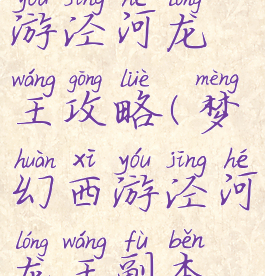 yóu jīng hé lóng
游泾河龙
wáng gōng lüè mèng
王攻略(梦
huàn xī yóu jīng hé
幻西游泾河
lóng wáng fù běn
龙王副本